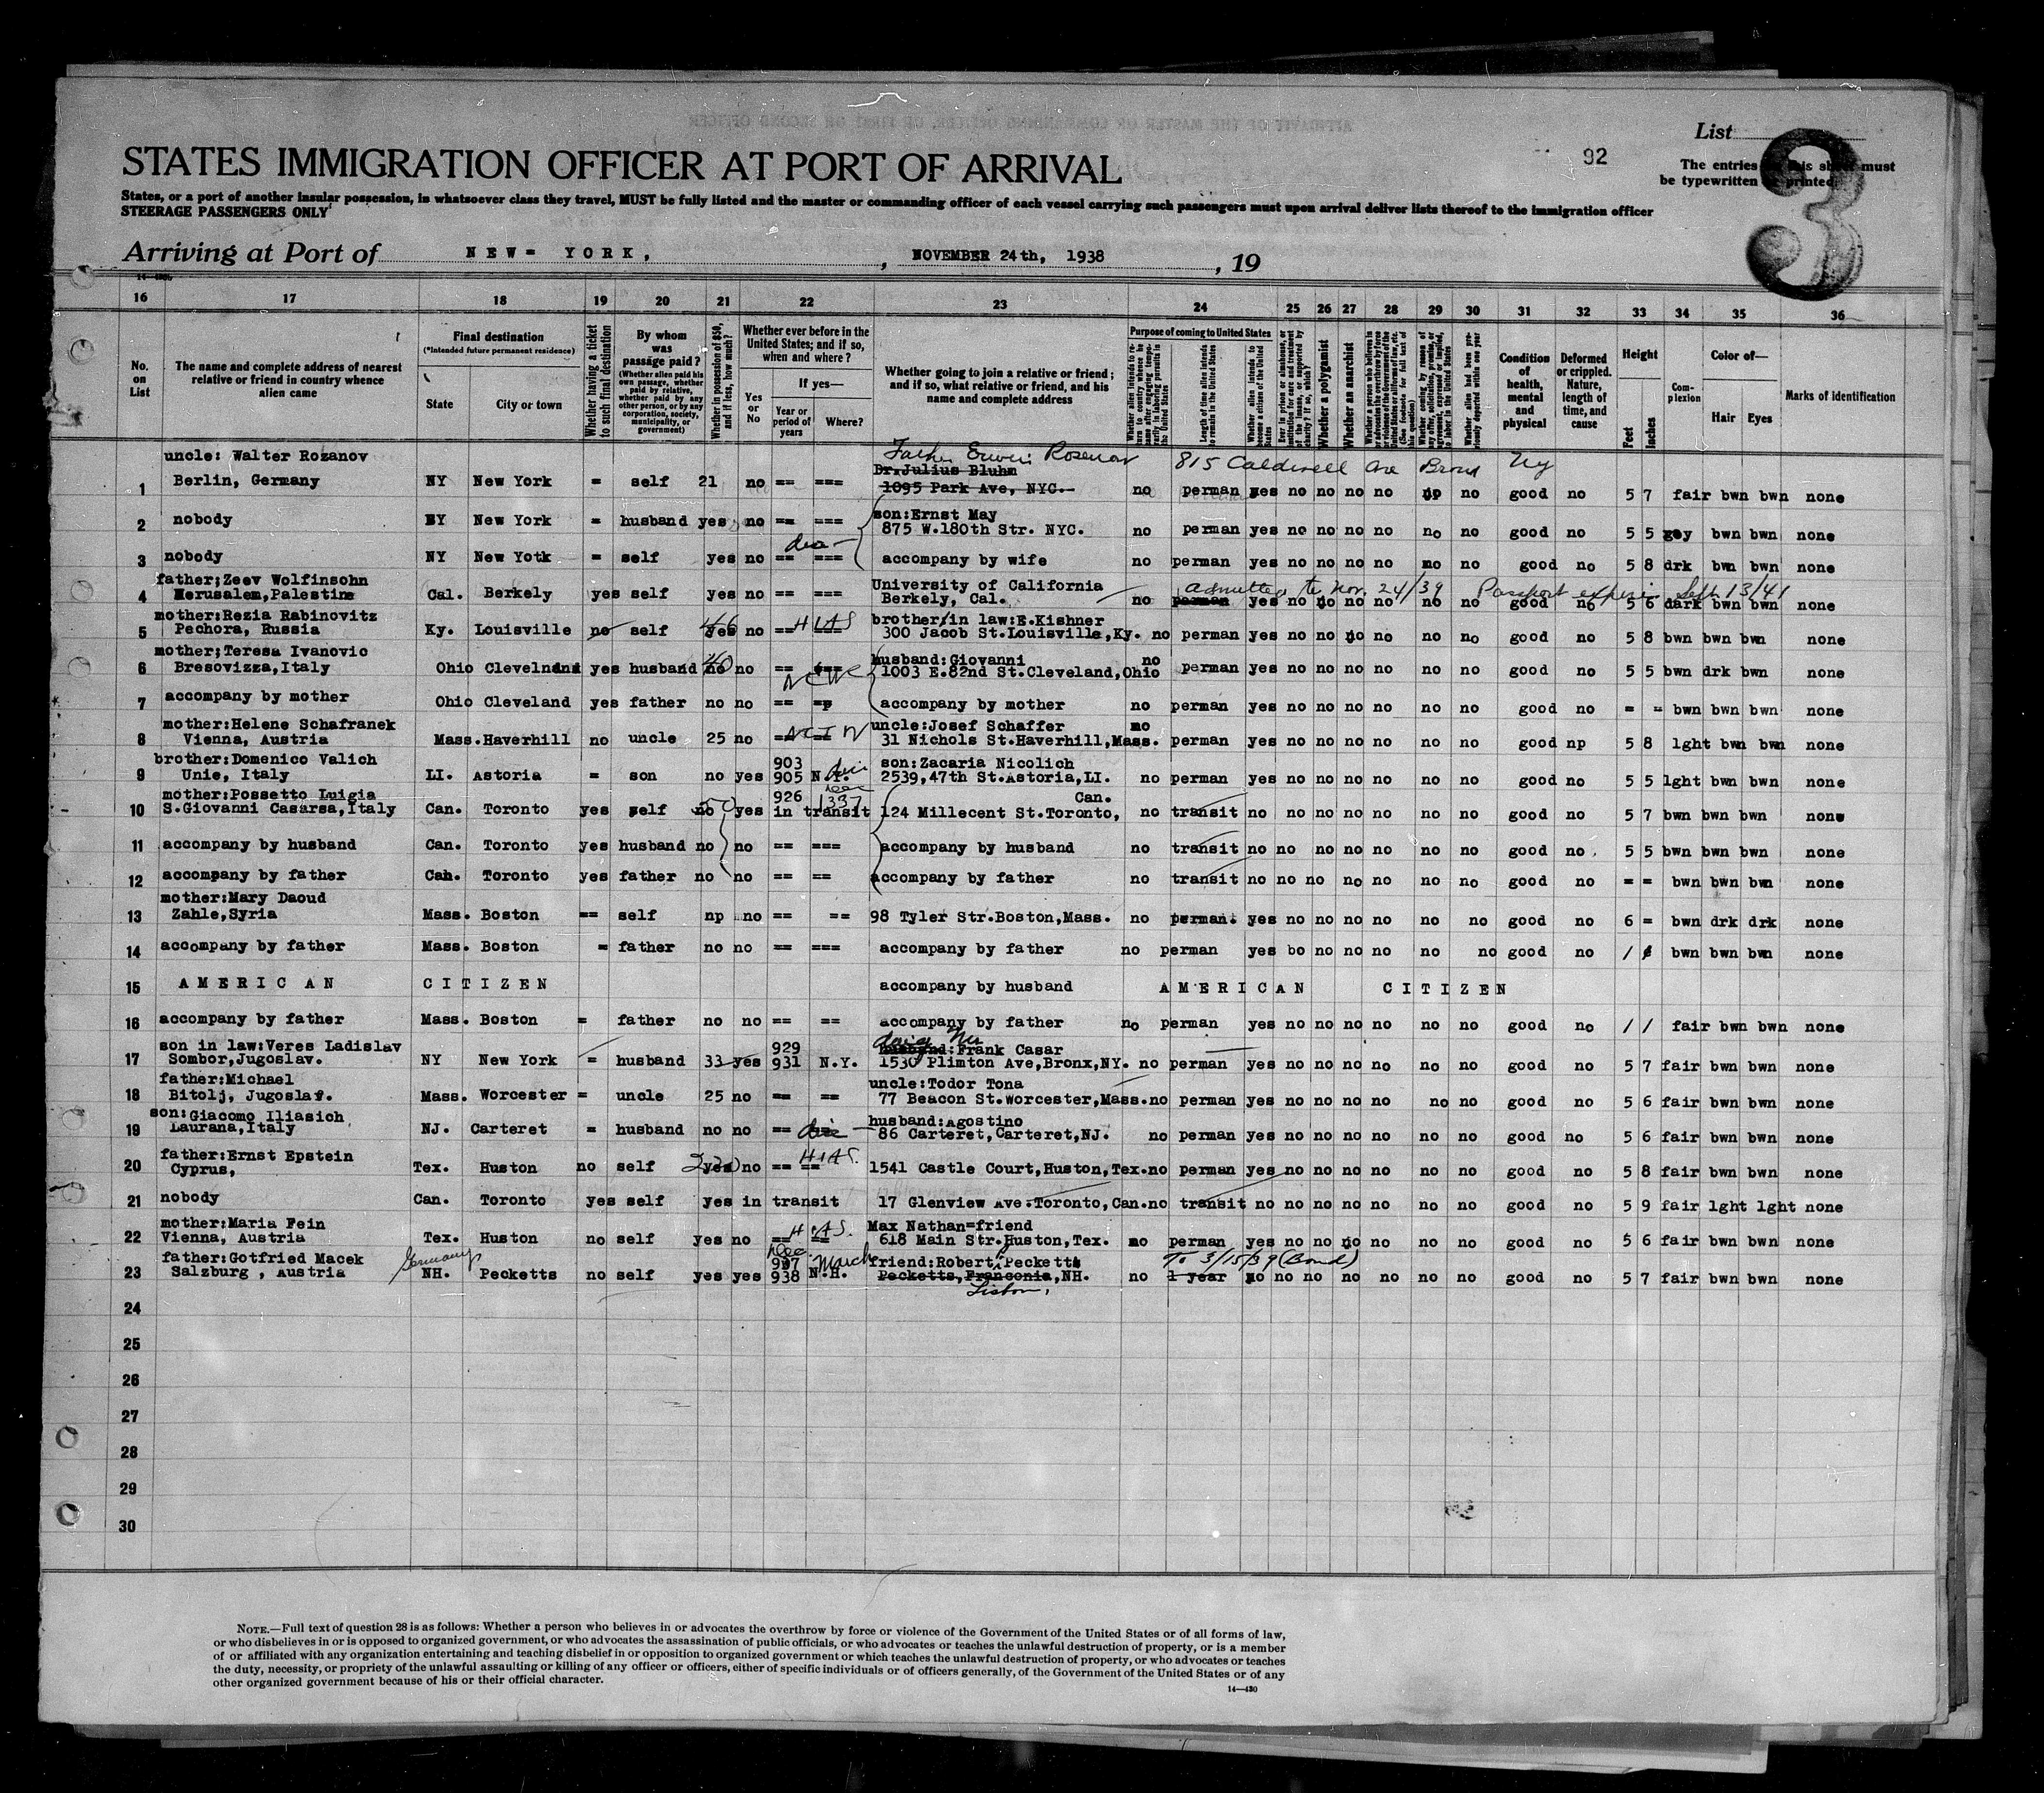 List
92
3
STATES IMMIGRATION OFFICER AT PORT OF ARRIVAL
The entries this sheet must
be typewritten printed
States, or a port of another insular possession, in whatsoever class they travel, MUST be fully listed and the master or commanding officer of each vessel carrying such passengers must upon arrival deliver lists thereof to the immigration officer
STEERAGE PASSENGERS ONLY
Arriving at Port of NEW= YORK, , NOVEMBER 24th, 1938 , 19
16 17 18 19 20 21 22 23 24 25 26 27 28 29 30 31 32 33 34 35 36
No. on List
The name and complete address of nearest relative or friend in country whence alien came
Final destination
(*Intended future permanent residence)
State
City or town
Whether having a ticket to such final destination
By whom was passage paid?
(Whether alien paid his own passage, whether paid by relative, whether paid by any other person, or by any corporation, society, municipality, or government)
Whether in possession of $50, and if less, how much?
Whether ever before in the United States; and if so, when and where?
Yes or No
If yes—
Year or period of years
Where?
Whether going to join a relative or friend; and if so, what relative or friend, and his name and complete address
Purpose of coming to United States
Length of time alien intends to remain in the United States
Whether alien intends to become a citizen of the United States
Whether a polygamist
Whether an anarchist
Condition of health, mental and physical
Deformed or crippled. Nature, length of time, and cause
Height
Feet
Inches
Complexion
Color of—
Hair
Eyes
Marks of identification
uncle: Walter Rozanov Father Erwin Rosenov 815 Caldwell Ave Bronx Ny
Dr.Julius Bluhm
1 Berlin, Germany NY New York = self 21 no == === 1095 Park Ave, NYC.- no perman yes no no no no no no good no 5 7 fair bwn bwn none
son:Ernst May
2 nobody NY New York = husband yes no == === 875 W.180th Str. NYC. no perman yes no no no no no no good no 5 5 gey bwn bwn none
3 nobody NY New Yotk = self yes no == === accompany by wife no perman yes no no no no no no good no 5 8 drk bwn bwn none
father;Zeev Wolfinsohn University of California admitted to Nov. 24/39 Passport expires Sept 13/41
4 Merusalem,Palestine Cal. Berkely yes self yes no == === Berkely, Cal. no perman yes no no no no no no good no 5 6 dark bwn bwn none
mother:Rezia Rabinovitz 46 HIAS brother/in law:E.Kishner
5 Pechora, Russia Ky. Louisville no self yes no == === 300 Jacob St.Louisville,Ky. no perman yes no no no no no no good no 5 8 bwn bwn bwn none
mother;Teresa Ivanovic 40 husband:Giovanni no
6 Bresovizza,Italy Ohio Clevelnand yes husband no no == === 1003 E.82nd St.Cleveland,Ohio perman yes no no no no no no good no 5 5 bwn drk bwn none
7 accompany by mother Ohio Cleveland yes father no no == =p accompany by mother no perman yes no no no no no no good no = = bwn bwn bwn none
mother:Helene Schafranek uncle:Josef Schaffer no
8 Vienna, Austria Mass. Haverhill no uncle 25 no 31 Nichols St.Haverhill,Mass. perman yes no no no no no no good np 5 8 lght bwn bwn none
brother:Domenico Valich 903 son:Zacaria Nicolich
9 Unie, Italy LI. Astoria = son no yes 905 N.Y. 2539,47th St.Astoria,LI. no perman yes no no no no no no good no 5 5 lght bwn bwn none
mother:Possetto Luigia 50 926 1337 Can.
10 S.Giovanni Casarsa,Italy Can. Toronto yes self no yes in transit 124 Millecent St.Toronto, no transit no no no no no no no good no 5 7 bwn bwn bwn none
11 accompany by husband Can. Toronto yes husband no no == === accompany by husband no transit no no no no no no no good no 5 5 bwn bwn bwn none
12 accompany by father Can. Toronto yes father no no == == accompany by father no transit no no no no no no no good no = = bwn bwn bwn none
mother:Mary Daoud
13 Zahle,Syria Mass. Boston == self np no == == 98 Tyler Str.Boston,Mass. no perman. yes no no no no no no good no 6 = bwn drk drk none
14 accompany by father Mass. Boston = father no no == === accompany by father no perman yes bo no no no no no good no / bwn bwn bwn none
15 AMERICAN CITIZEN accompany by husband AMERICAN CITIZEN
16 accompany by father Mass. Boston = father no no == == accompany by father no perman yes no no no no no no good no / / fair bwn bwn none
son in law:Veres Ladislav 929 husband:Frank Casar
17 Sombor,Jugoslav. NY New York = husband 33 yes 931 N.Y. 1530 Plimton Ave,Bronx,NY. no perman yes no no no no no no good no 5 7 fair bwn bwn none
father:Michael uncle:Todor Tona
18 Bitolj, Jugoslaf. Mass. Worcester = uncle 25 no == == 77 Beacon St.Worcester,Mass. no perman yes no no no no no no good no 5 6 fair bwn bwn none
son:Giacomo Iliasich husband:Agostino
19 Laurana,Italy NJ. Carteret = husband no no == 86 Carteret,Carteret,NJ. no perman yes no no no no no no good no 5 6 fair bwn bwn none
father:Ernst Epstein HIAS.
20 Cyprus, Tex. Huston no self yes no == == 1541 Castle Court,Huston,Tex. no perman yes no no no no no no good no 5 8 fair bwn bwn none
21 nobody Can. Toronto yes self yes in transit 17 Glenview Ave.Toronto,Can. no transit no no no no no no no good no 5 9 fair lght lght none
mother:Maria Fein HIAS. Max Nathan=friend
22 Vienna, Austria Tex. Huston no self yes no == == 618 Main Str.Huston,Tex. no perman yes no no no no no no good no 5 6 fair bwn bwn none
father:Gotfried Macek Germany Dec. 937 March friend:Robert Pecketts To 3/15/39 (Bond)
23 Salzburg , Austria NH. Pecketts no self yes yes 938 N.H. Pecketts,Franconia,NH. no 1 year no no no no no no no good no 5 7 fair bwn bwn none
Lisbon,
24
25
26
27
28
29
30
NOTE.—Full text of question 28 is as follows: Whether a person who believes in or advocates the overthrow by force or violence of the Government of the United States or of all forms of law,
or who disbelieves in or is opposed to organized government, or who advocates the assassination of public officials, or who advocates or teaches the unlawful destruction of property, or is a member
of or affiliated with any organization entertaining and teaching disbelief in or opposition to organized government or which teaches the unlawful destruction of property, or who advocates or teaches
the duty, necessity, or propriety of the unlawful assaulting or killing of any officer or officers, either of specific individuals or of officers generally, of the Government of the United States or of any
other organized government because of his or their official character.
14—430